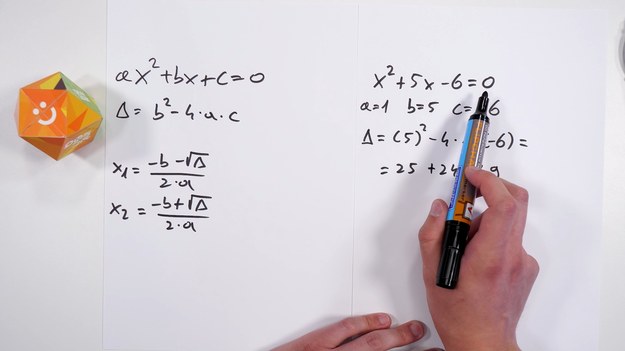 ax²+bx+c=0
Δ= b²-4·a·c
x₁ = (-b-√Δ)/(2·a)
x₂ = (-b+√Δ)/(2·a)
x²+5x-6=0
a=1 b=5 c= 6
Δ= (5)²-4· -6)=
= 25 +24 9